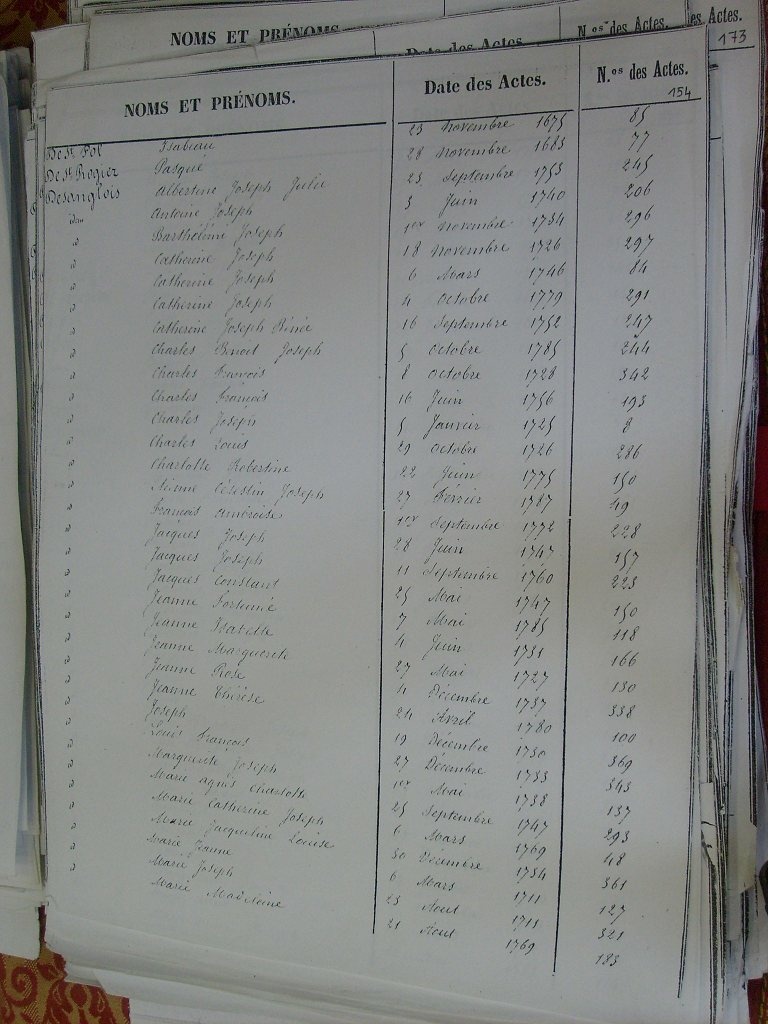 NOMS ET PRÉNOMS. Date des Actes. N.os des Actes.
des Actes.
173
NOMS ET PRÉNOMS. Date des Actes. N.os des Actes.
154
De St Pol Isabeau 23 Novembre 1675 85
De St Rogier Pasqué 28 Novembre 1683 77
Desanglois Albertine Joseph Julie 23 Septembre 1753 245
idem Antoine Joseph 3 Juin 1740 206
d Barthélémi Joseph 1er Novembre 1734 296
d Catherine Joseph 18 Novembre 1726 297
d Catherine Joseph 6 Mars 1746 84
d Catherine Joseph 4 Octobre 1779 291
d Catherine Joseph Rénée 16 Septembre 1752 247
d Charles Benoit Joseph 5 Octobre 1785 244
d Charles François 8 Octobre 1728 342
d Charles François 16 Juin 1756 193
d Charles Joseph 5 Janvier 1725 8
d Charles Louis 29 Octobre 1726 286
d Charlotte Robertine 22 Juin 1775 150
d Etienne Célestin Joseph 27 Février 1787 49
d François Ambroise 1er Septembre 1772 228
d Jacques Joseph 28 Juin 1747 157
d Jacques Joseph 11 Septembre 1760 223
d Jacques Constant 25 Mai 1747 150
d Jeanne Fortunée 7 Mai 1785 118
d Jeanne Isabelle 4 Juin 1731 166
d Jeanne Marguerite 27 Mai 1727 130
d Jeanne Rose 4 Décembre 1737 338
d Jeanne Thérèse 24 Avril 1780 100
d Joseph 19 Décembre 1730 369
d Louis François 27 Décembre 1733 343
d Marguerite Joseph 1er Mai 1738 137
d Marie agnès Charlotte 25 Septembre 1747 293
d Marie Catherine Joseph 6 Mars 1769 48
d Marie Jacqueline Louise 30 Décembre 1734 361
d Marie Jeanne 6 Mars 1711 127
d Marie Joseph 23 Aout 1711 321
d Marie Madeleine 21 Aout 1769 183